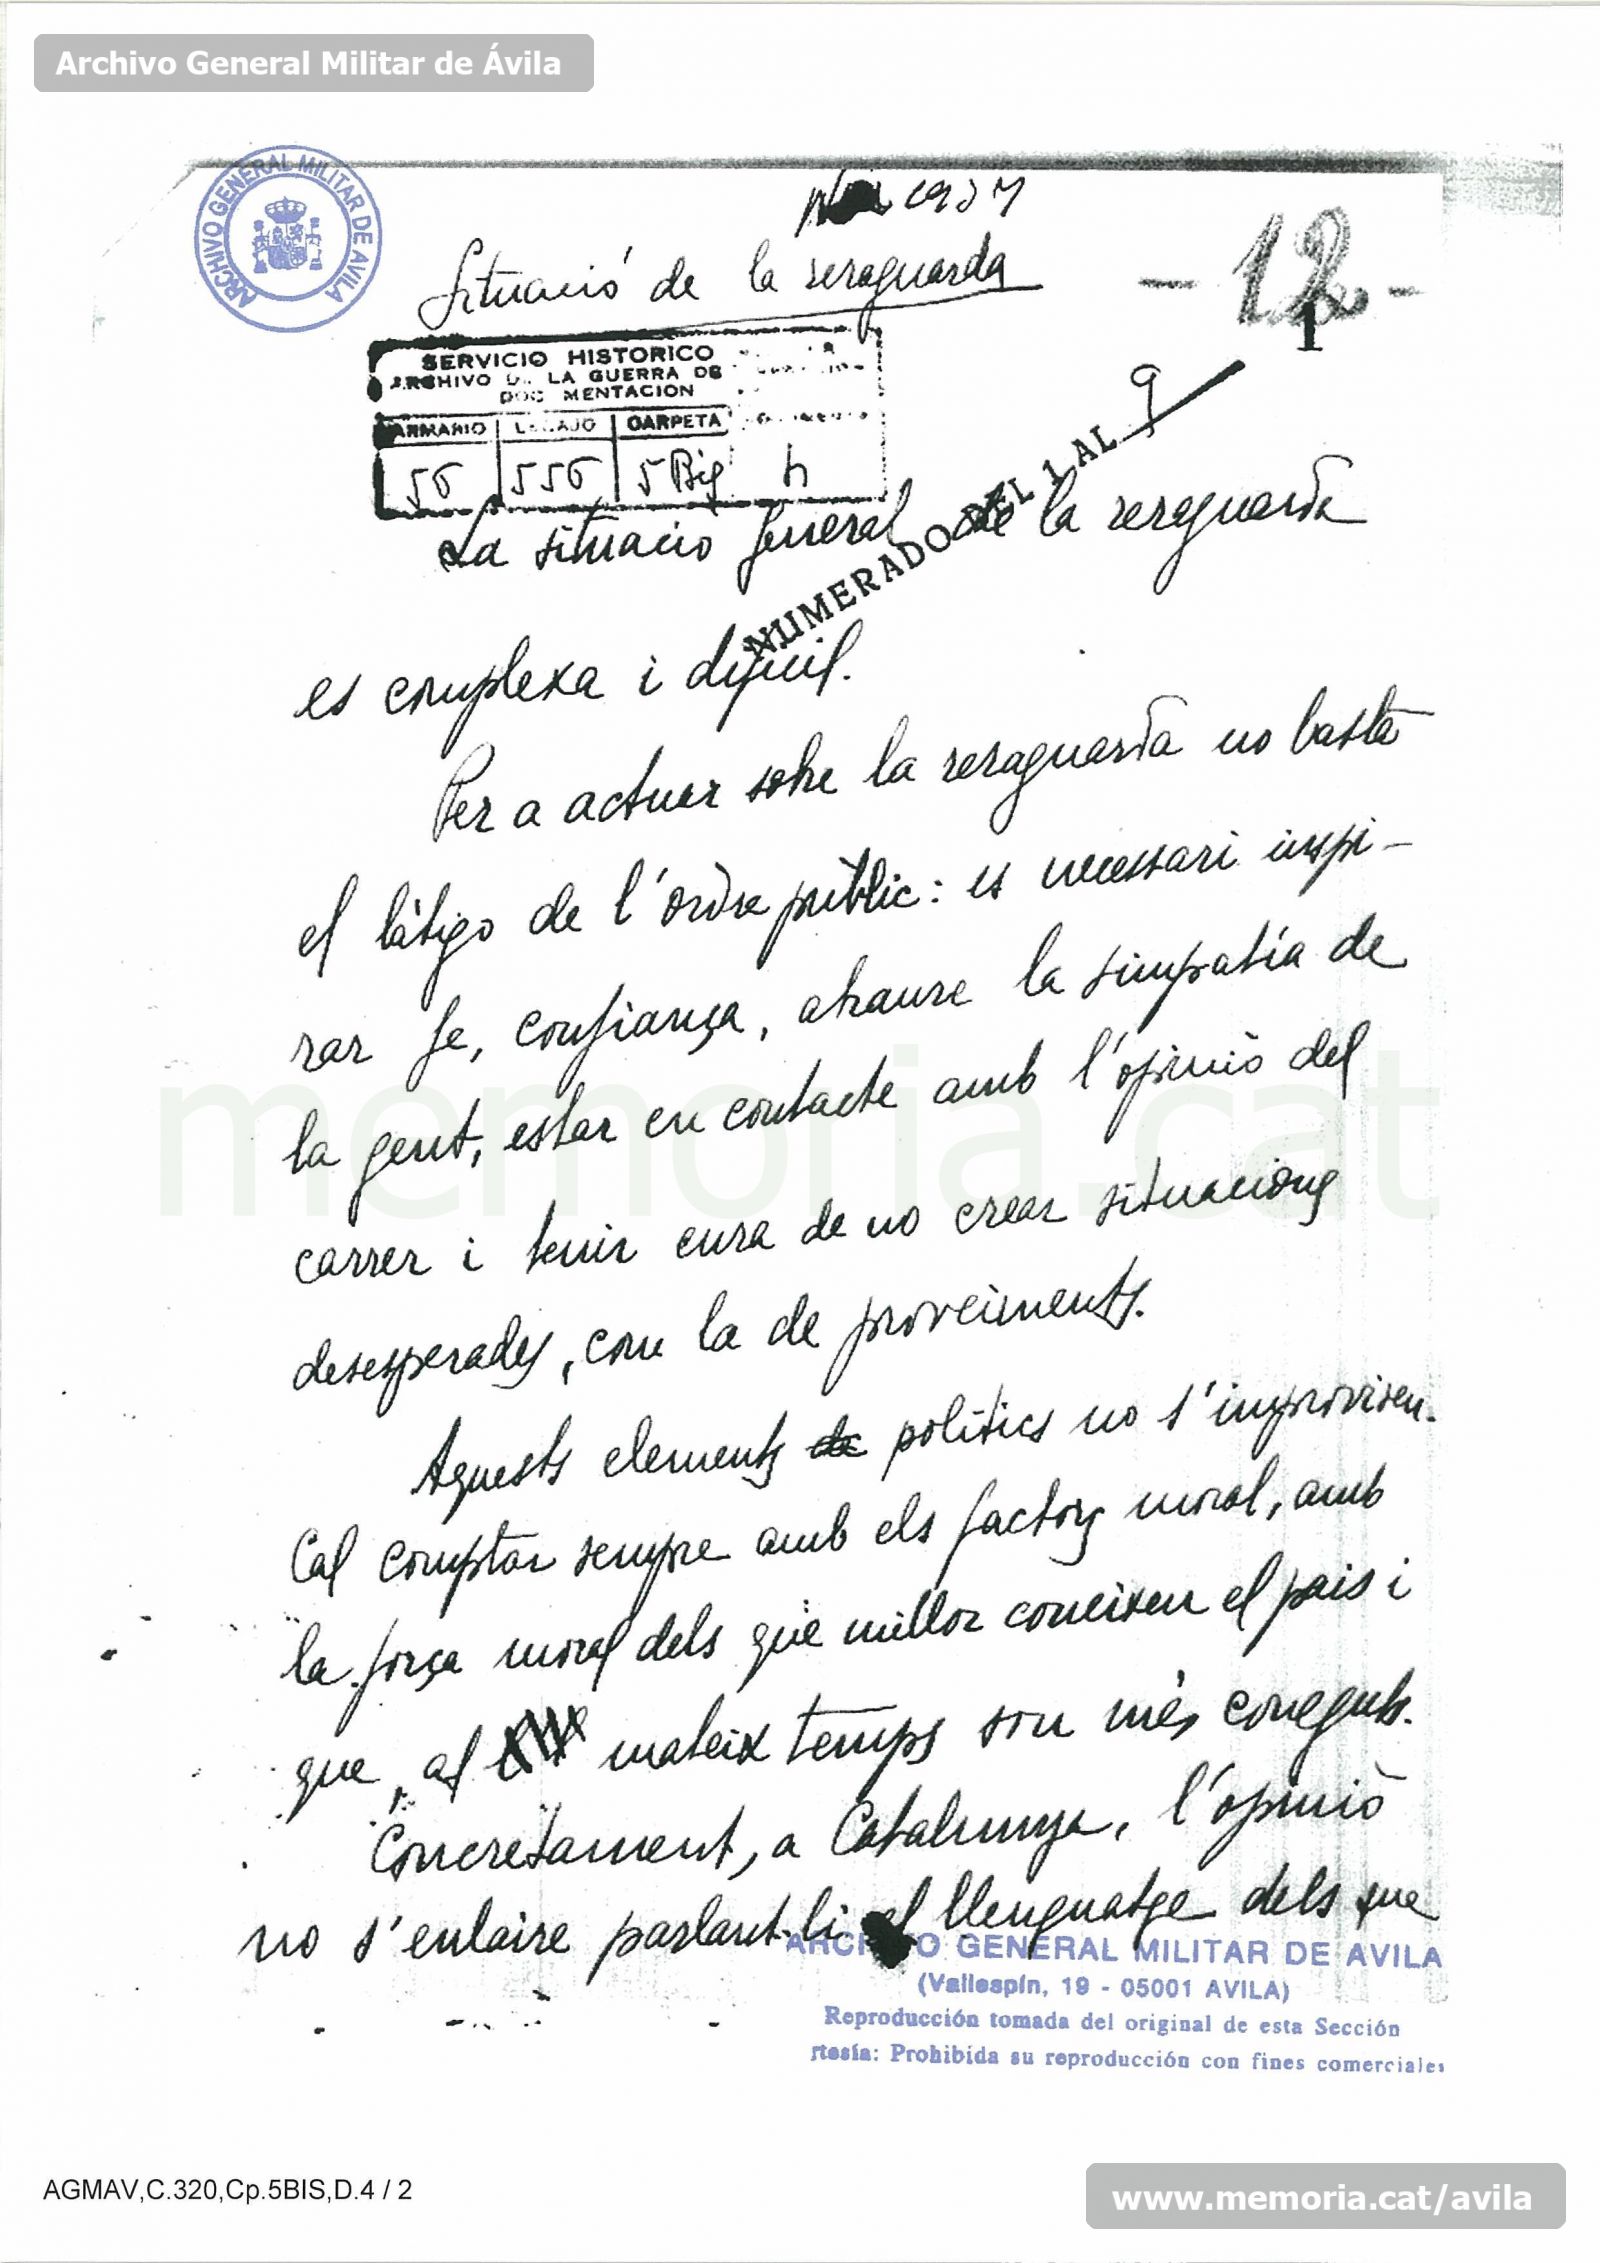 Archivo General Militar de Ávila
ARCHIVO GENERAL MILITAR DE AVILA
1937
Situació de la reraguarda
- 12 -
1
SERVICIO HISTORICO
ARCHIVO DE LA GUERRA DE
DOCUMENTACION
ARMARIO LEGAJO CARPETA
56 556 5 Bis h
NUMERADO DEL 1 AL 9
La situacio general de la reraguarda
es complexa i dificil.
Per a actuar sobre la reraguarda no basta
el làtigo de l'ordre públic: es necessari inspi-
rar fe, confiança, atraure la simpatía de
la gent, estar en contacte amb l'opinió del
carrer i tenir cura de no crear situacions
desesperades, com la de proveiments.
Aquests elements de politics no s'improvisen.
Cal comptar sempre amb els factors moral, amb
la força moral dels que millor coneixen el pais i
que, al mateix temps son més coneguts.
Concretament, a Catalunya, l'opinió
no s'enlaire parlant-li el llenguatge dels que
ARCHIVO GENERAL MILITAR DE AVILA
(Vallespín, 19 - 05001 AVILA)
Reproducción tomada del original de esta Sección
rtesía: Prohibida su reproducción con fines comerciales
memoria.cat
AGMAV,C.320,Cp.5BIS,D.4 / 2
www.memoria.cat/avila